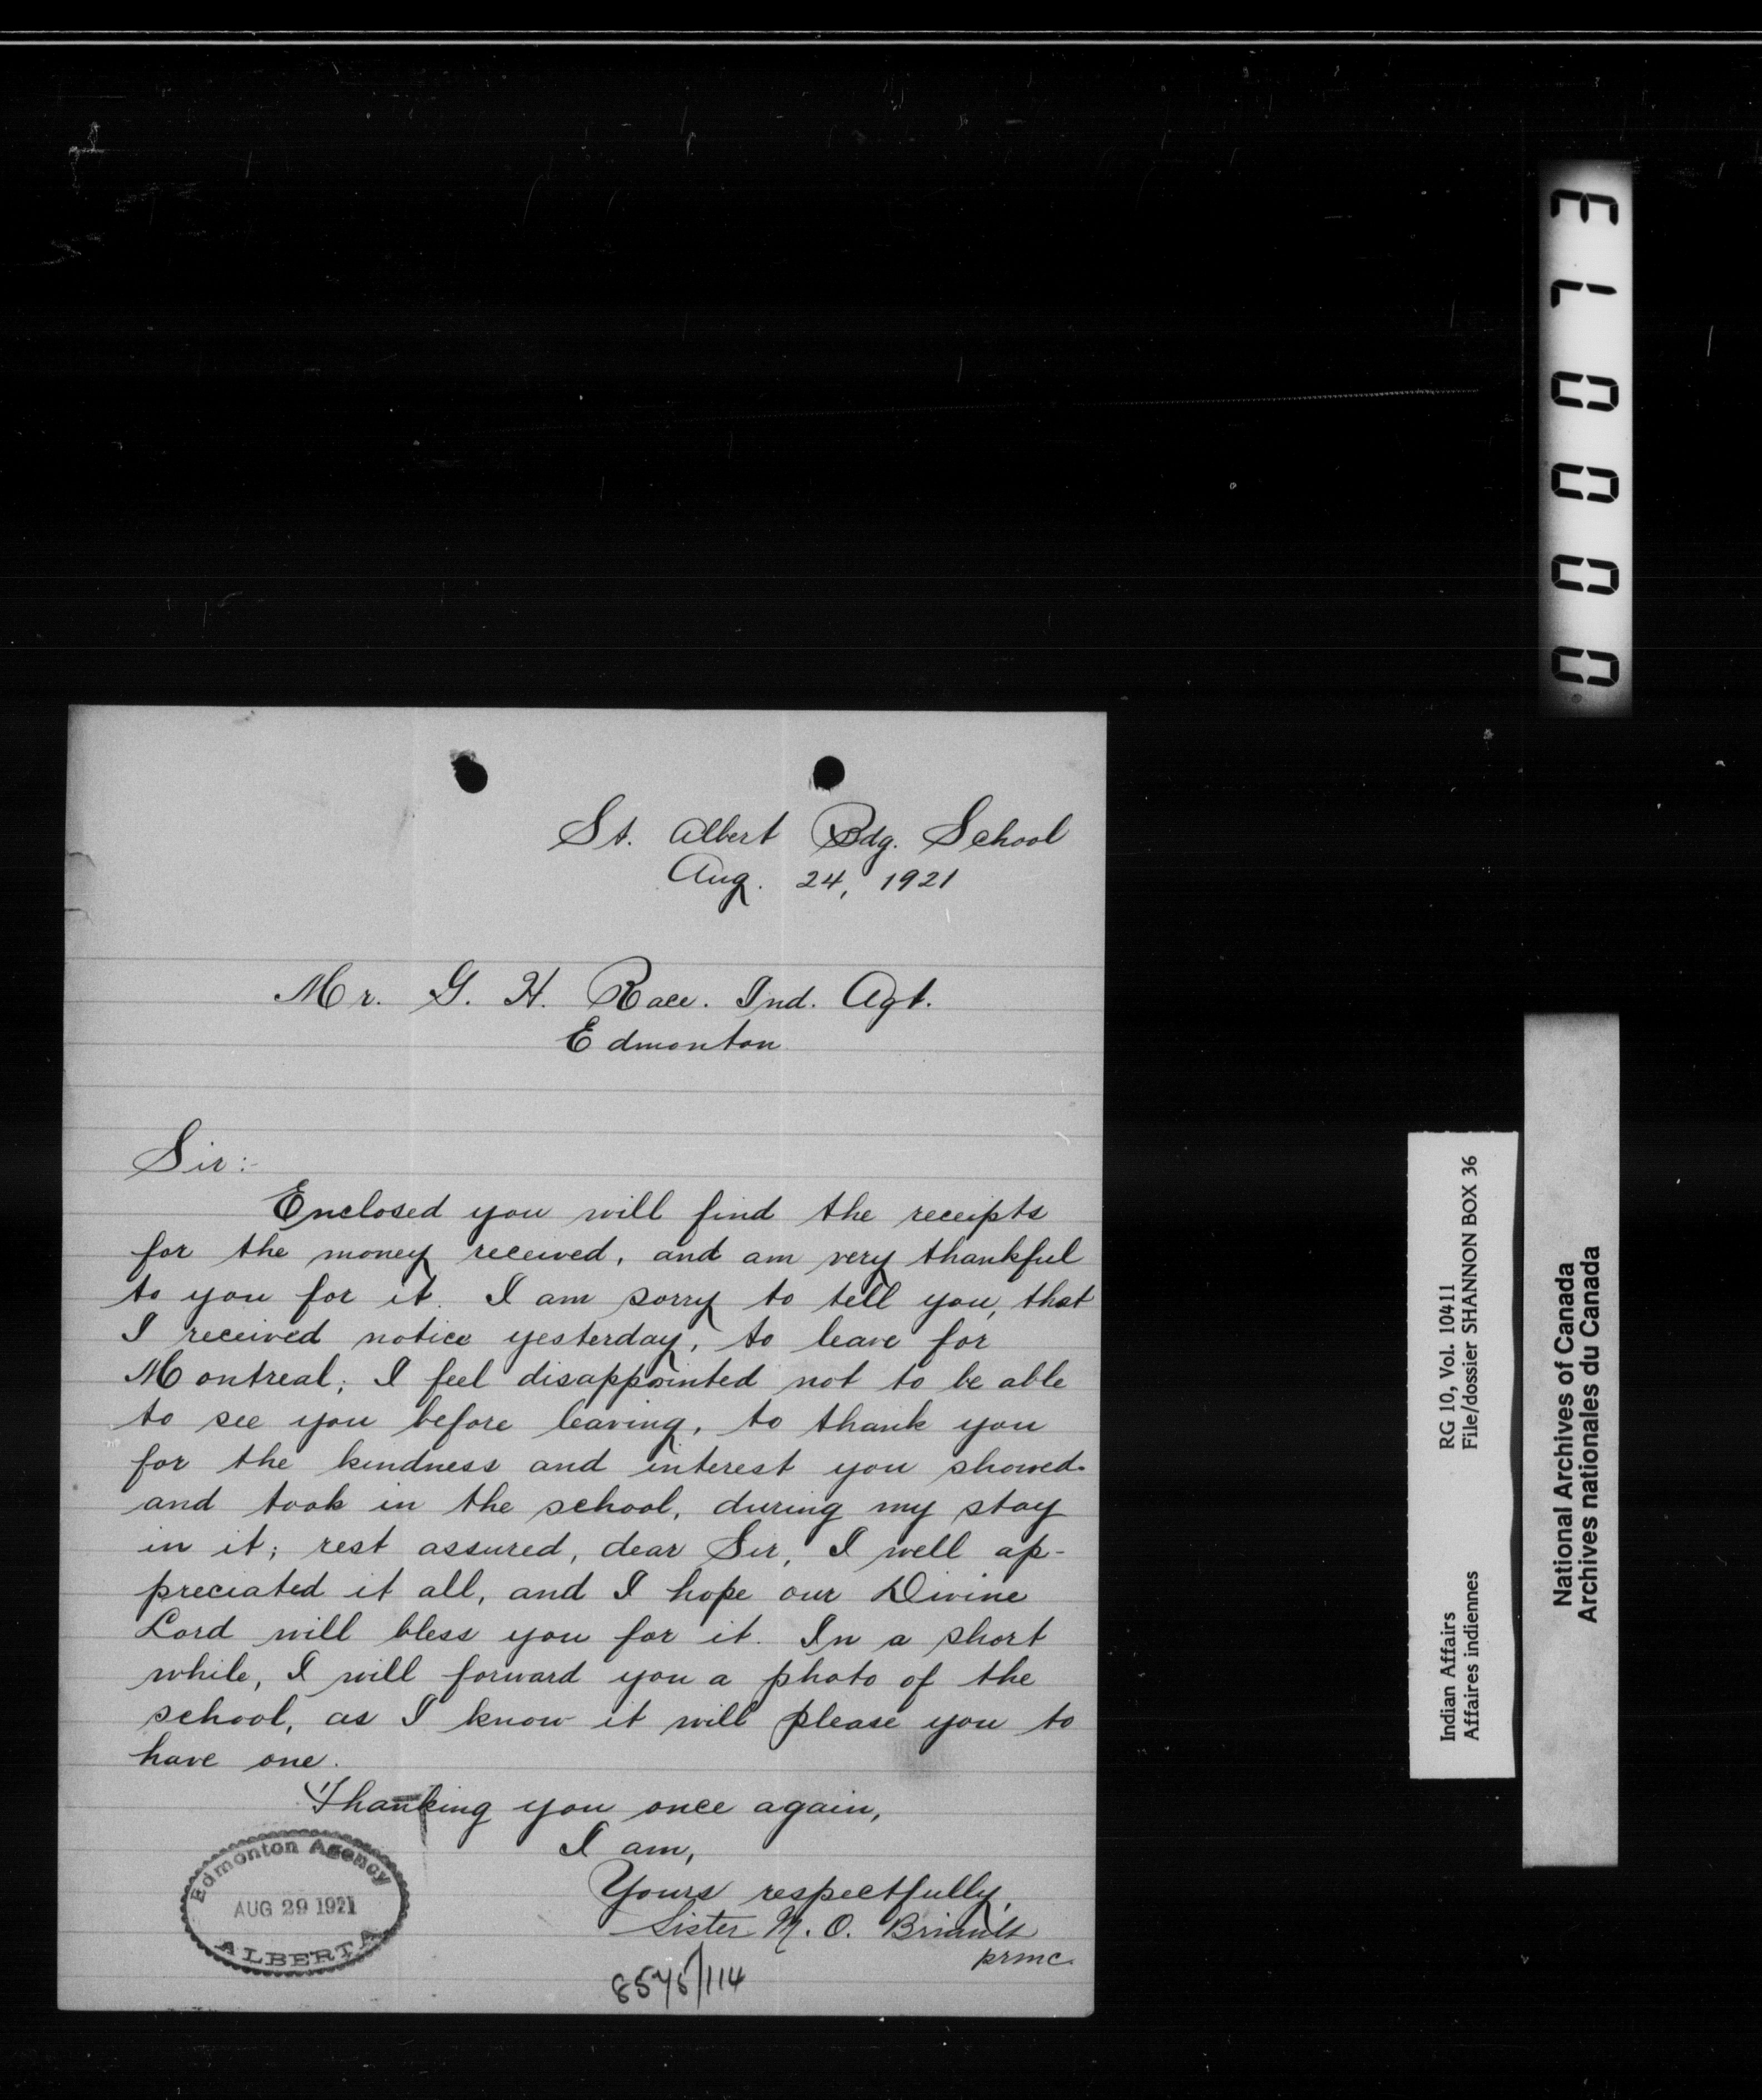 St. Albert Bdg. School
Aug. 24, 1921
Mr. G. H. Race. Ind. Agt.
Edmonton
Sir:-
Enclosed you will find the receipts
for the money received, and am very thankful
to you for it. I am sorry to tell you, that
I received notice yesterday, to leave for
Montreal; I feel disappointed not to be able
to see you before leaving, to thank you
for the kindness and interest you showed
and took in the school, during my stay
in it; rest assured, dear Sir, I well ap-
preciated it all, and I hope our Divine
Lord will bless you for it. In a short
while, I will forward you a photo of the
school, as I know it will please you to
have one.
Thanking you once again,
I am,
Yours respectfully,
Sister M. O. Briault
princ.
Edmonton Agency
AUG 29 1921
ALBERTA
/114
000013
Indian Affairs RG 10, Vol. 10411
Affaires indiennes File/dossier SHANNON BOX 36
National Archives of Canada
Archives nationales du Canada